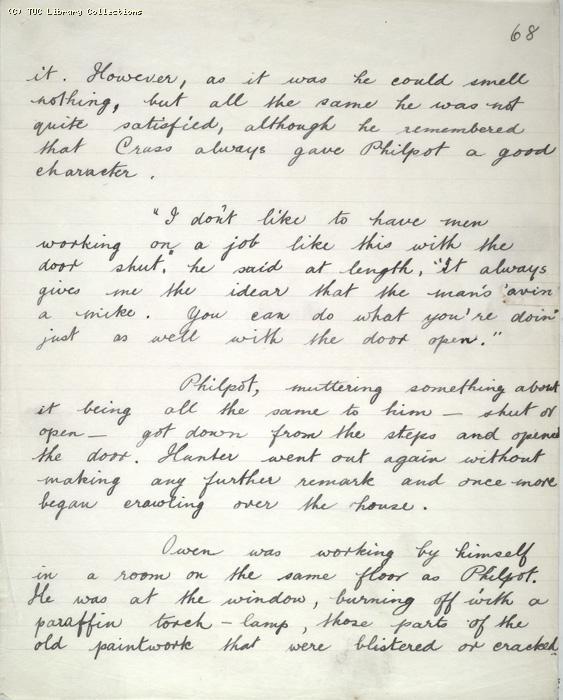 (C) TUC Library Collections
68
it. However, as it was he could smell
nothing, but all the same he was not
quite satisfied, although he remembered
that Crass always gave Philpot a good
character.
"I don't like to have men
working on a job like this with the
door shut," he said at length, "It always
gives me the idear that the man's 'avin
a mike. You can do what you're doin'
just as well with the door open."
Philpot, muttering something about
it being all the same to him — shut or
open — got down from the steps and opened
the door. Hunter went out again without
making any further remark and once more
began crawling over the house.
Owen was working by himself
in a room on the same floor as Philpot.
He was at the window, burning off with a
paraffin torch-lamp, those parts of the
old paintwork that were blistered or cracked.